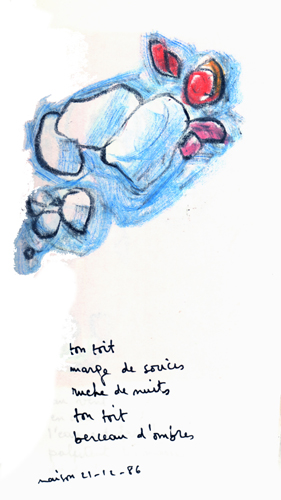 ton toit
marge de soucis
ruche de nuits
ton toit
berceau d'ombres
maison 21-12-86